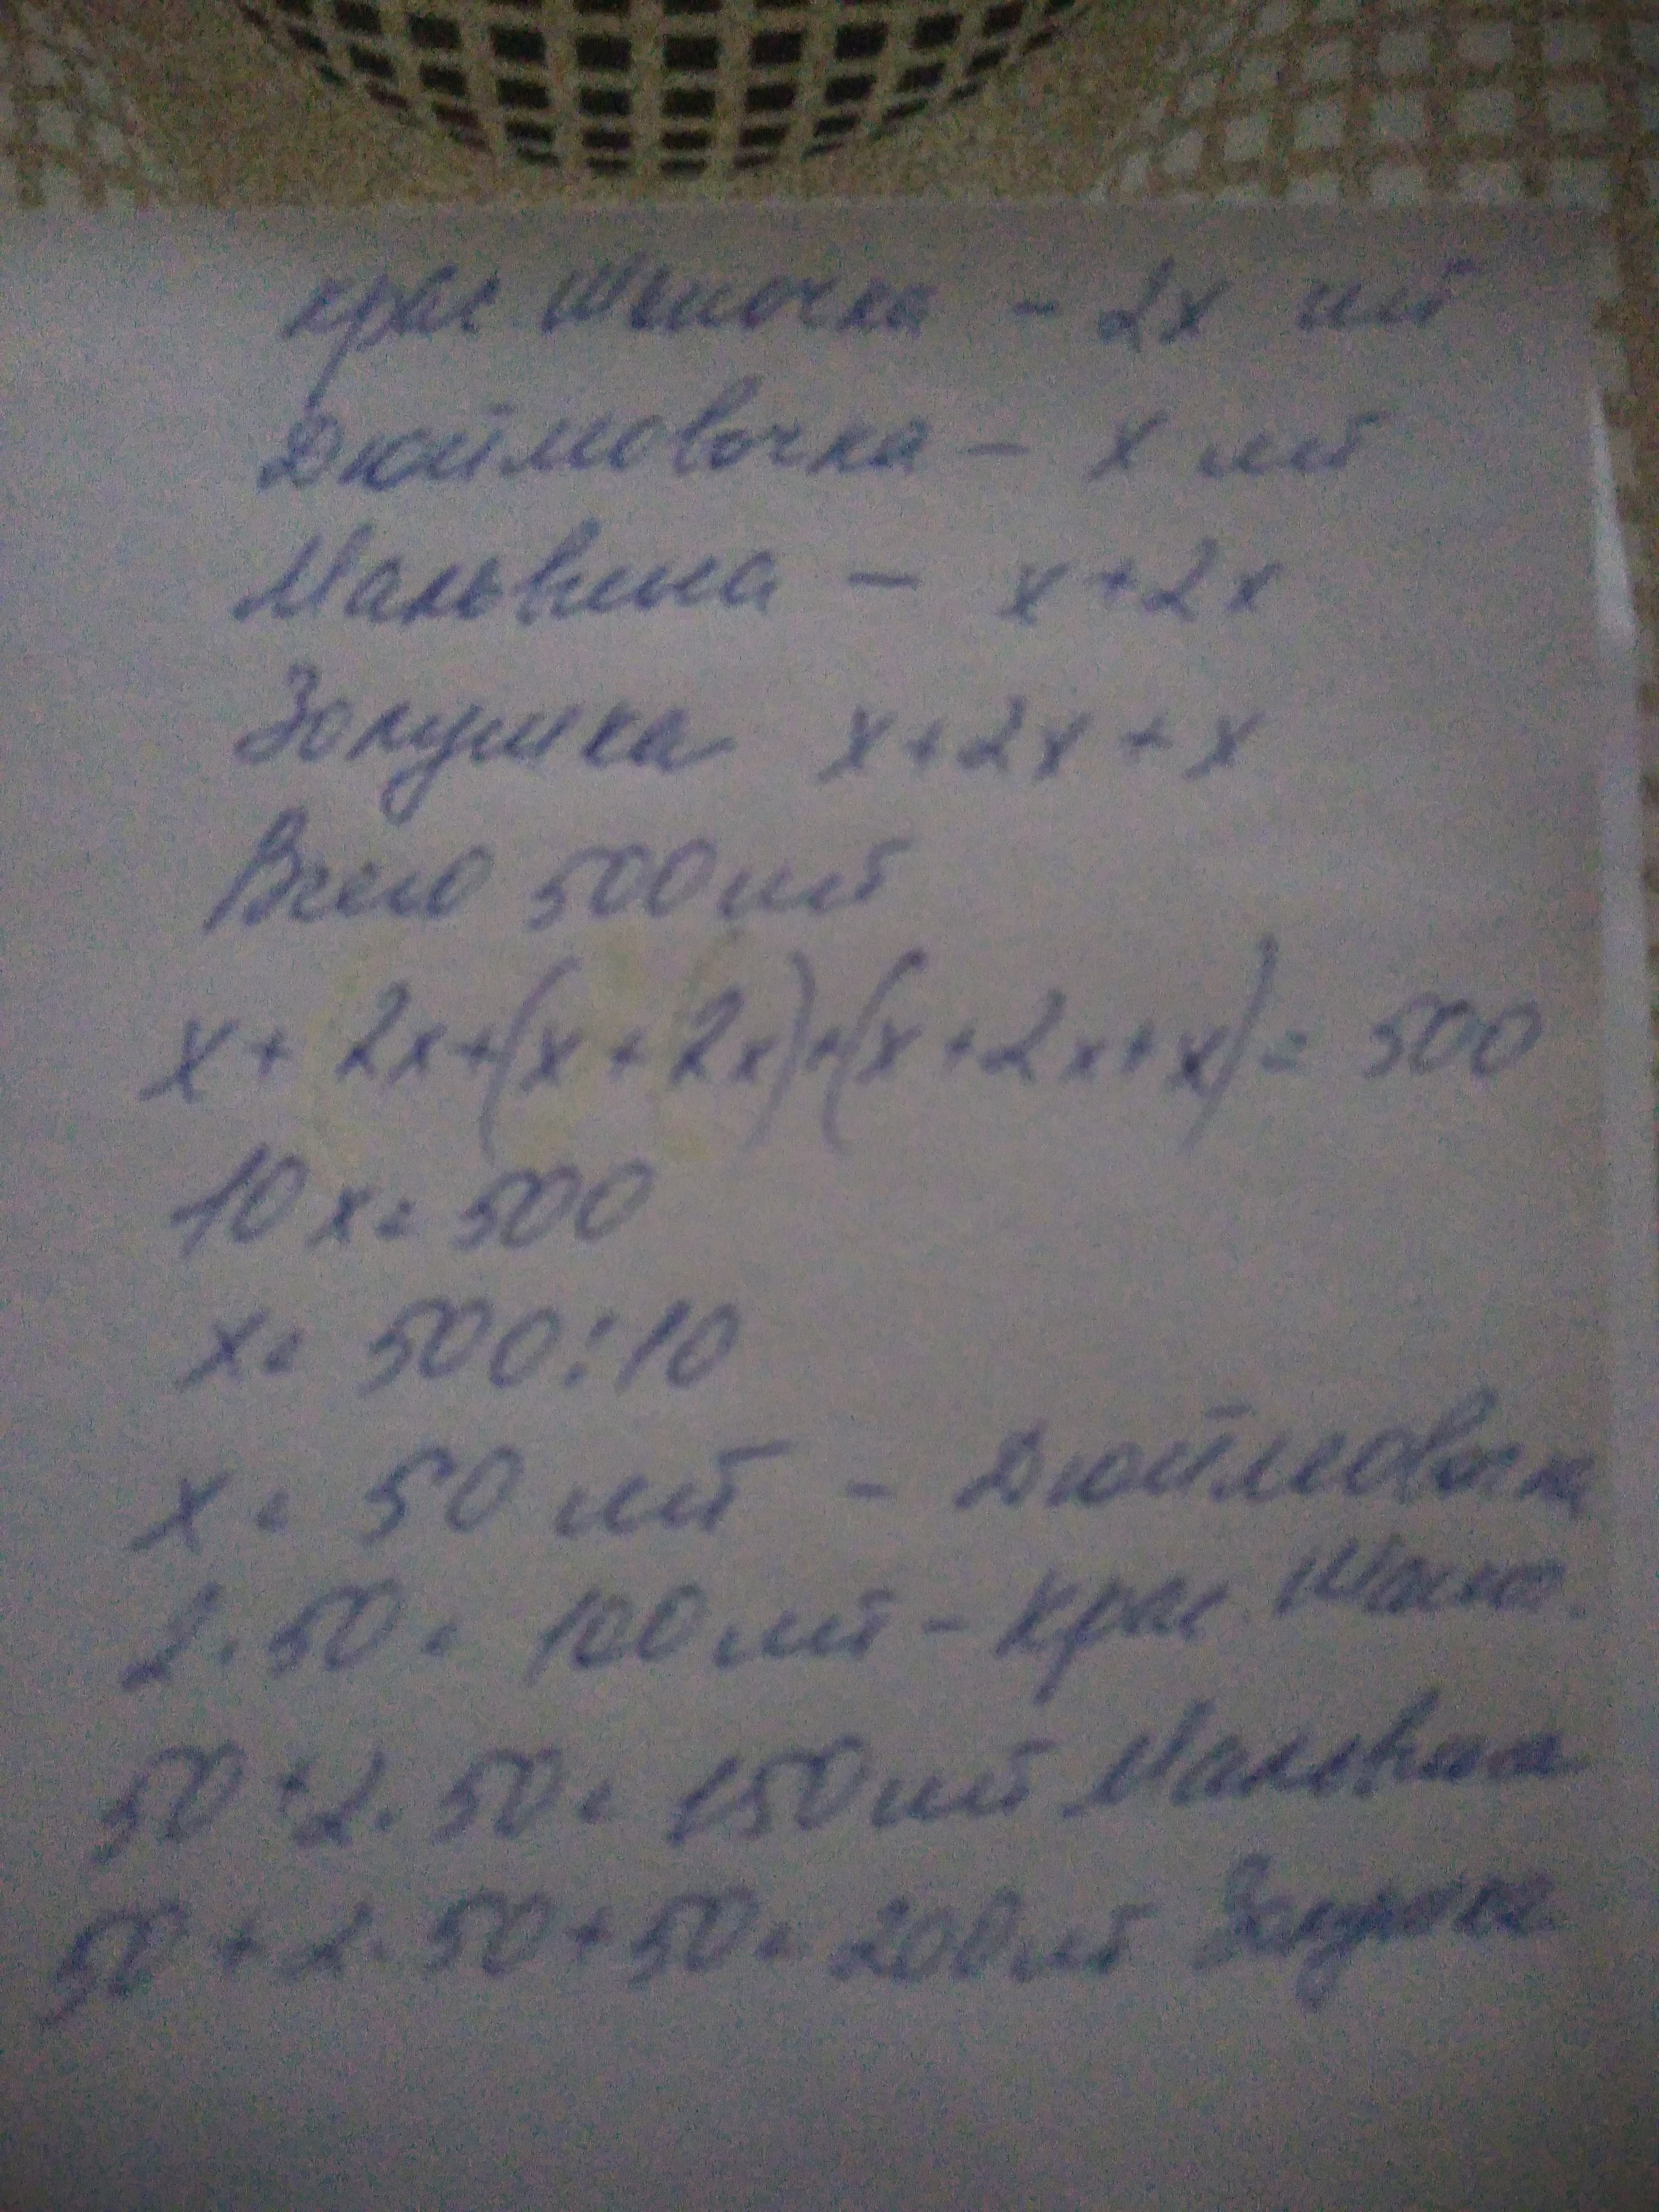 Крас Шапочка - 2x шт
Дюймовочка - x шт
Мальвина - x+2x
Золушка x+2x+x
Всего 500 шт
x+2x+(x+2x)+(x+2x+x)=500
10x=500
x=500:10
x=50 шт - Дюймовочк
2·50=100 шт - Крас Шапо.
50+2·50=150 шт Мальвина
50+2·50+50=200 шт Золушка